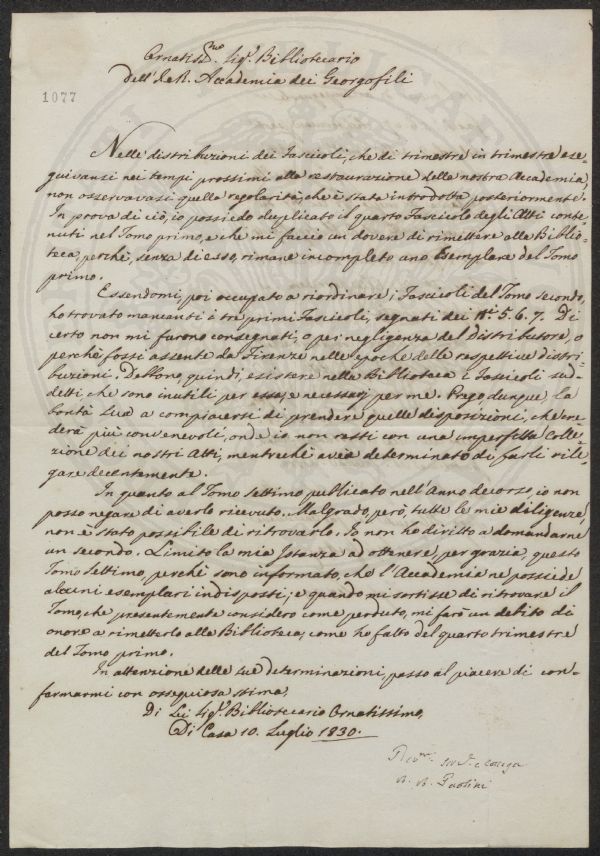 Ornatis.mo Sig.r Bibliotecario
Dell'I. e R. Accademia dei Georgofili
1077
Nelle distribuzioni dei Fascicoli, che di trimestre in trimestre ese-
guivansi nei tempi prossimi alla restaurazione della nostra Accademia,
non osservavasi quella regolarità, che è stata introdotta posteriormente.
In prova di ciò, io possiedo duplicato il quarto Fascicolo degli Atti conte-
nuti nel Tomo primo, e che mi faccio un dovere di rimettere alla Biblio-
teca, perchè, senza di esso, rimane incompleto uno Esemplare del Tomo
primo.
Essendomi, poi occupato a riordinare i Fascicoli del Tomo secondo,
ho trovato mancanti i tre primi Fascicoli, segnati dei N.i 5. 6. 7. Di
certo non mi furono consegnati, o per negligenza del Distributore, o
perchè fossi assente da Firenze nelle epoche delle respettive distri-
buzioni. Debbono, quindi, esistere nella Biblioteca i Fascicoli sud-
detti, che sono inutili per essa, e necessarj per me. Prego, dunque, la
bontà Sua a compiacersi di prendere quelle disposizioni, che cre-
derà più convenevoli, onde io non resti con una imperfetta Colle-
zione dei nostri Atti, mentrechè avea determinato di farli rile-
gare decentemente.
In quanto al Tomo settimo pubblicato nell'Anno decorso, io non
posso negare di averlo ricevuto. Malgrado, però, tutte le mie diligenze,
non è stato possibile di ritrovarlo. Io non ho diritto a domandarne
un secondo. Limito la mia Istanza ad ottenere, per grazia, questo
Tomo Settimo, perchè sono informato, che l'Accademia ne possiede
alcuni esemplari indisposti; e quando mi sortisse di ritrovare il
Tomo, che presentemente considero come perduto, mi farò un debito di
onore a rimetterlo alla Biblioteca, come ho fatto del quarto trimestre
del Tomo primo.
In attenzione delle sue determinazioni, passo al piacere di con-
farmarmi con ossequiosa stima,
Di Lei Sig.r Bibliotecario Ornatissimo,
Di Casa 10. Luglio 1830.
serv.e e Collega
Paolini